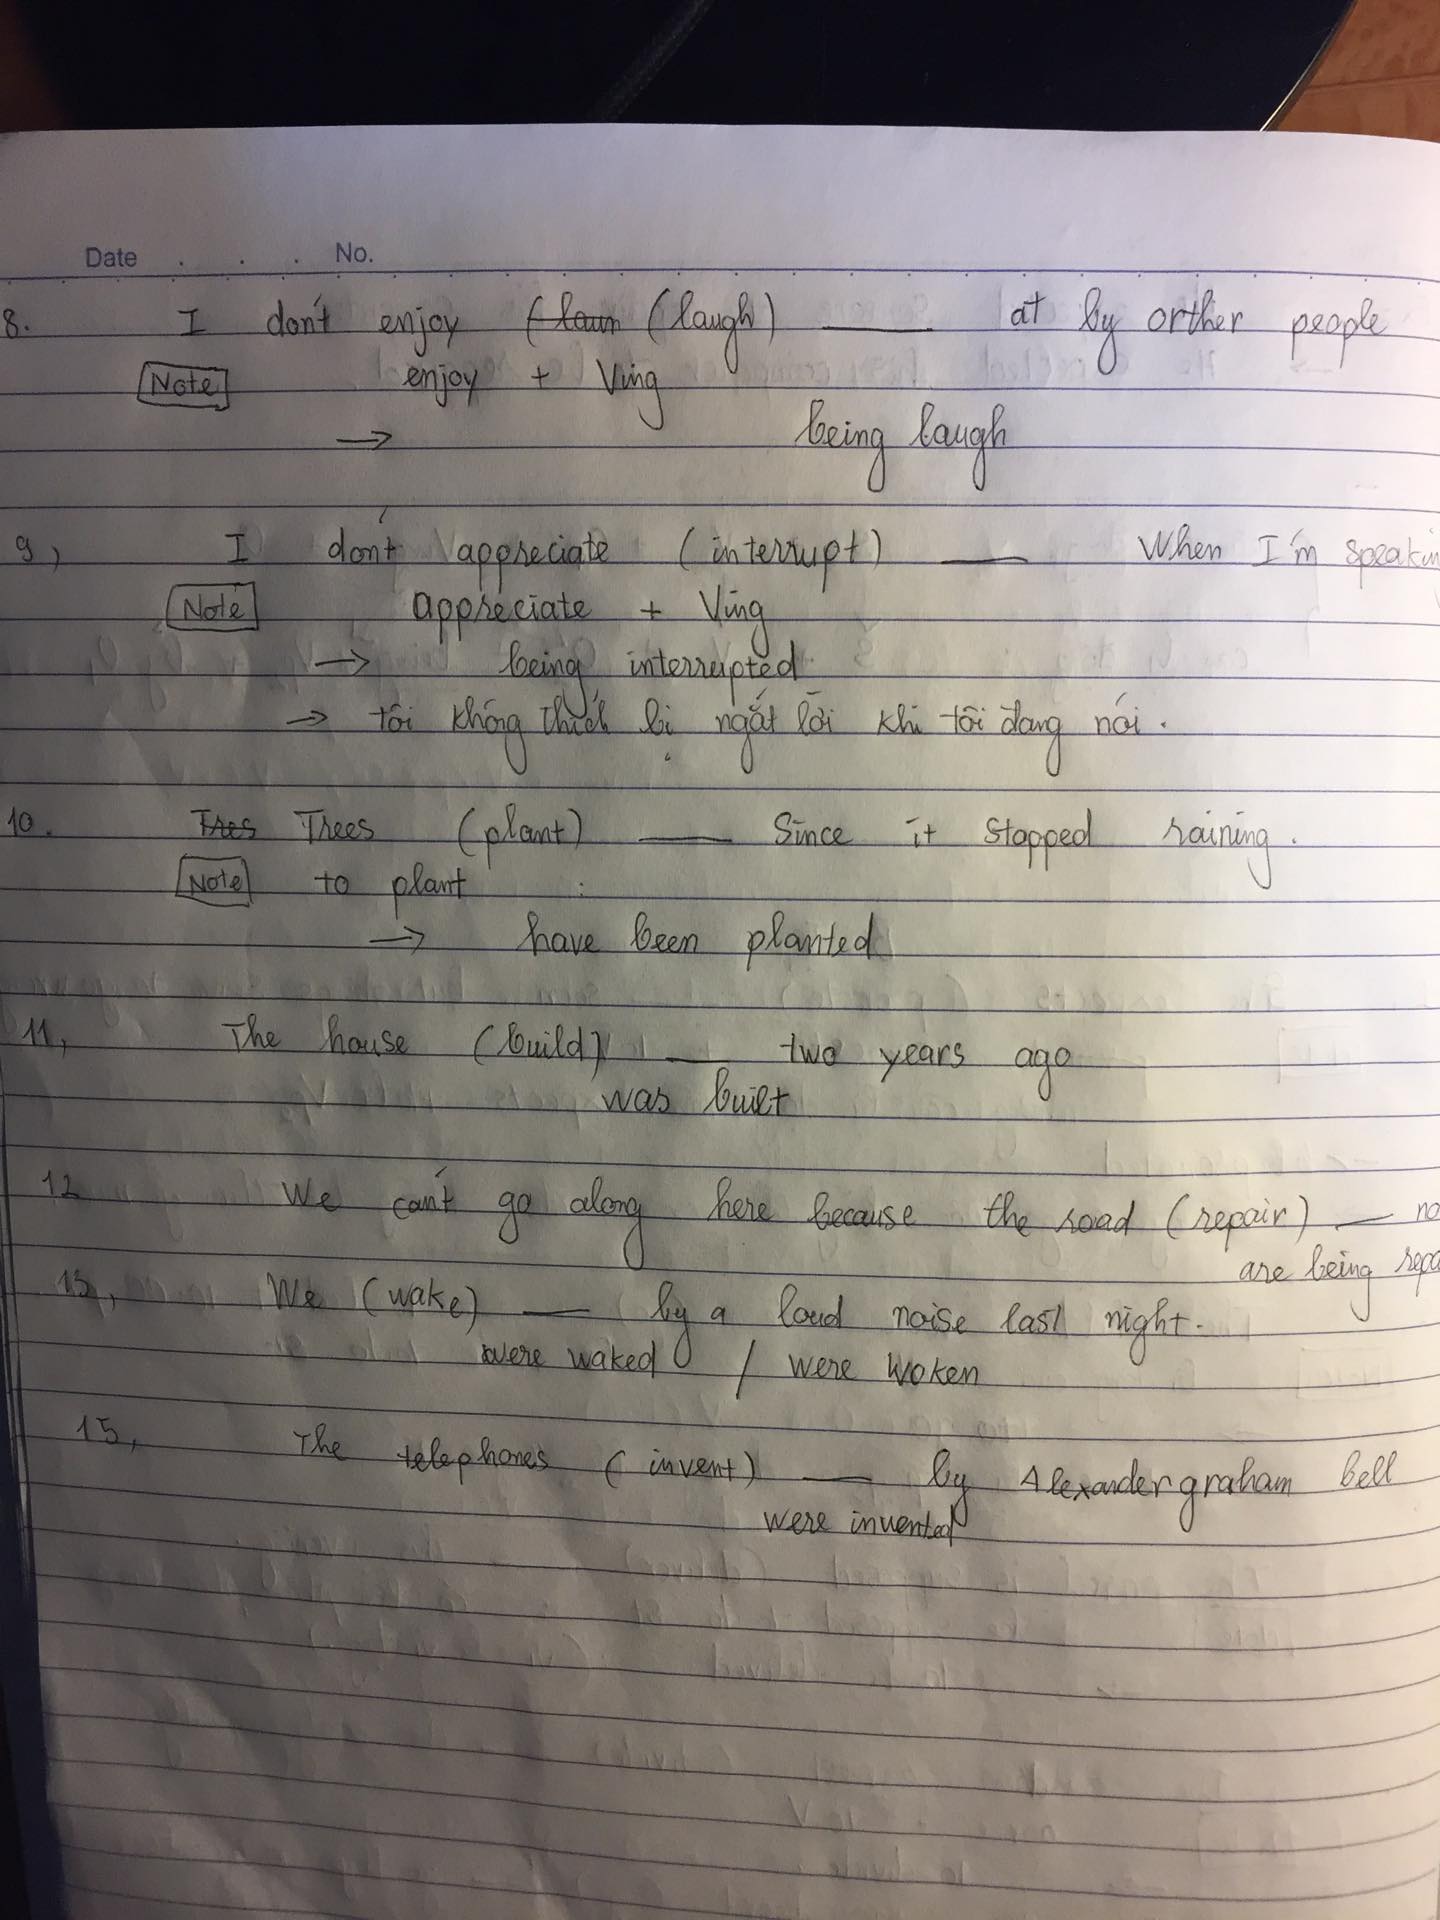 Date . . . No.
8. I don't enjoy (laun (laugh) ____ at by orther people
Note enjoy + Ving
→ being laugh
9, I don't appreciate (interrupt) ____ When I'm speakin
Note appreciate + Ving
→ being interrupted
→ tôi không thích bị ngắt lời khi tôi đang nói.
10. Trees Trees (plant) ____ Since it stopped raining.
Note to plant
→ have been planted
11, The house (build) ____ two years ago
was built
12 We can't go along here because the road (repair) ____ no
are being repa
13, We (wake) ____ by a loud noise last night.
were waked / were woken
15, The telephones (invent) ____ by Alexander graham bell
were invented